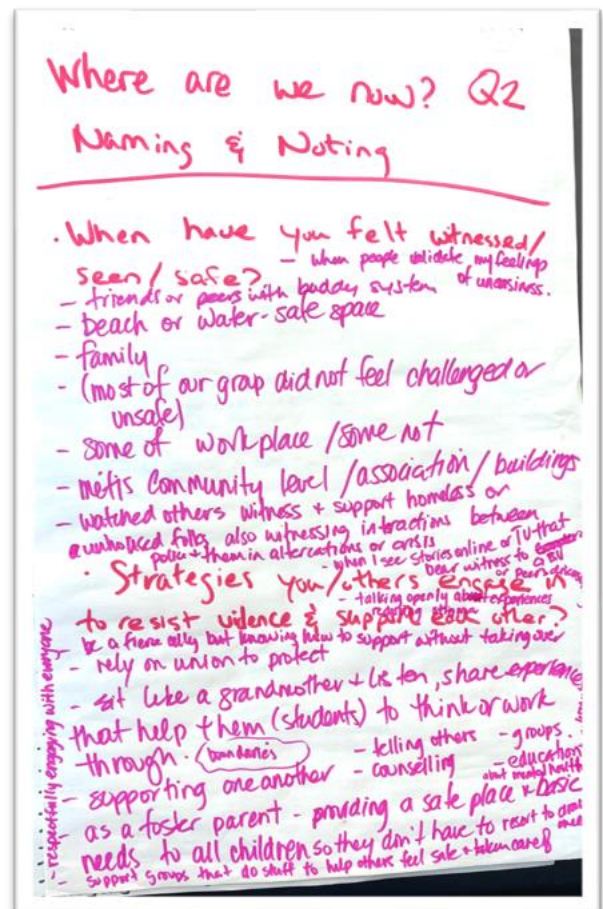 Where are we now? Q2
Naming & Noting
· When have you felt witnessed/
seen/ safe?
- when people validate my feelings
of uneasiness.
- friends or peers with buddy system
- beach or water - safe space
- family
- (most of our group did not feel challenged or
unsafe)
- some of workplace / some not
- métis community level / association / buildings
- watched others witness + support homeless or
unhoused folks, also witnessing interactions between
police + them in altercations or crisis
- when I see stories online or TV that
bear witness to a
· Strategies you/others engage in
- talking openly about experiences
to resist violence & support each other?
be a fierce ally but knowing how to support without taking over
- rely on union to protect
- sit like a grandmother + listen, share experiences
that help them (students) to think or work
through. boundaries
- telling others - groups
- supporting one another - counselling - education
about mental health
- as a foster parent - providing a safe place & basic
needs to all children so they don't have to resort to
- support groups that do stuff to help others feel safe + taken care of
- respectfully engaging with everyone